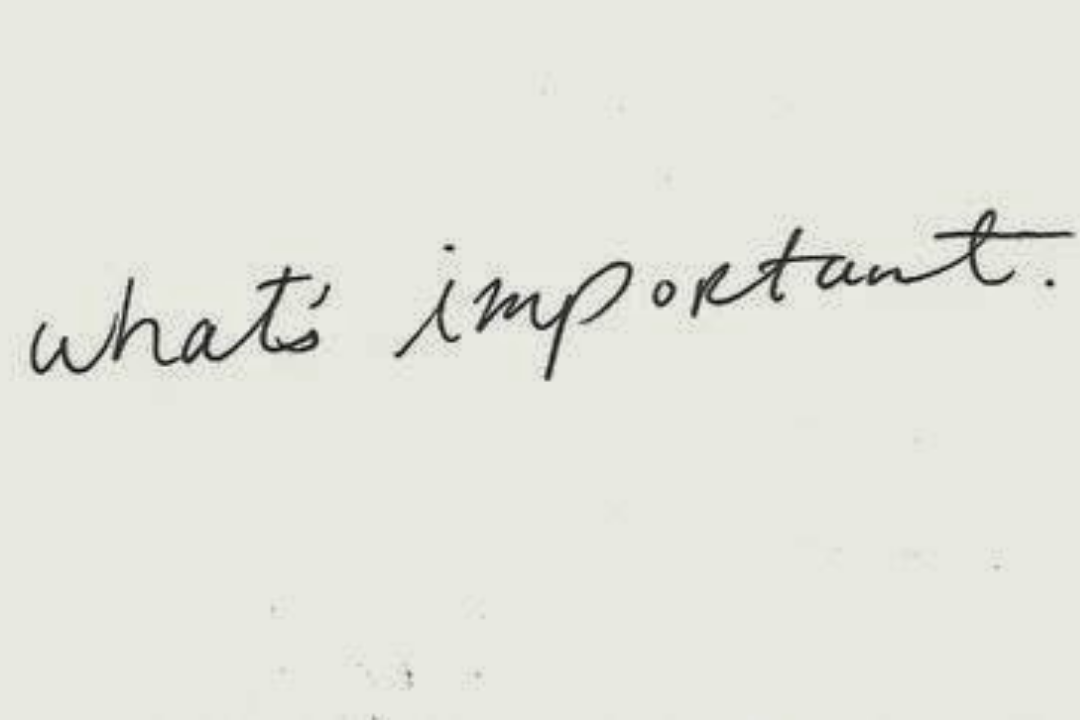 what's important.